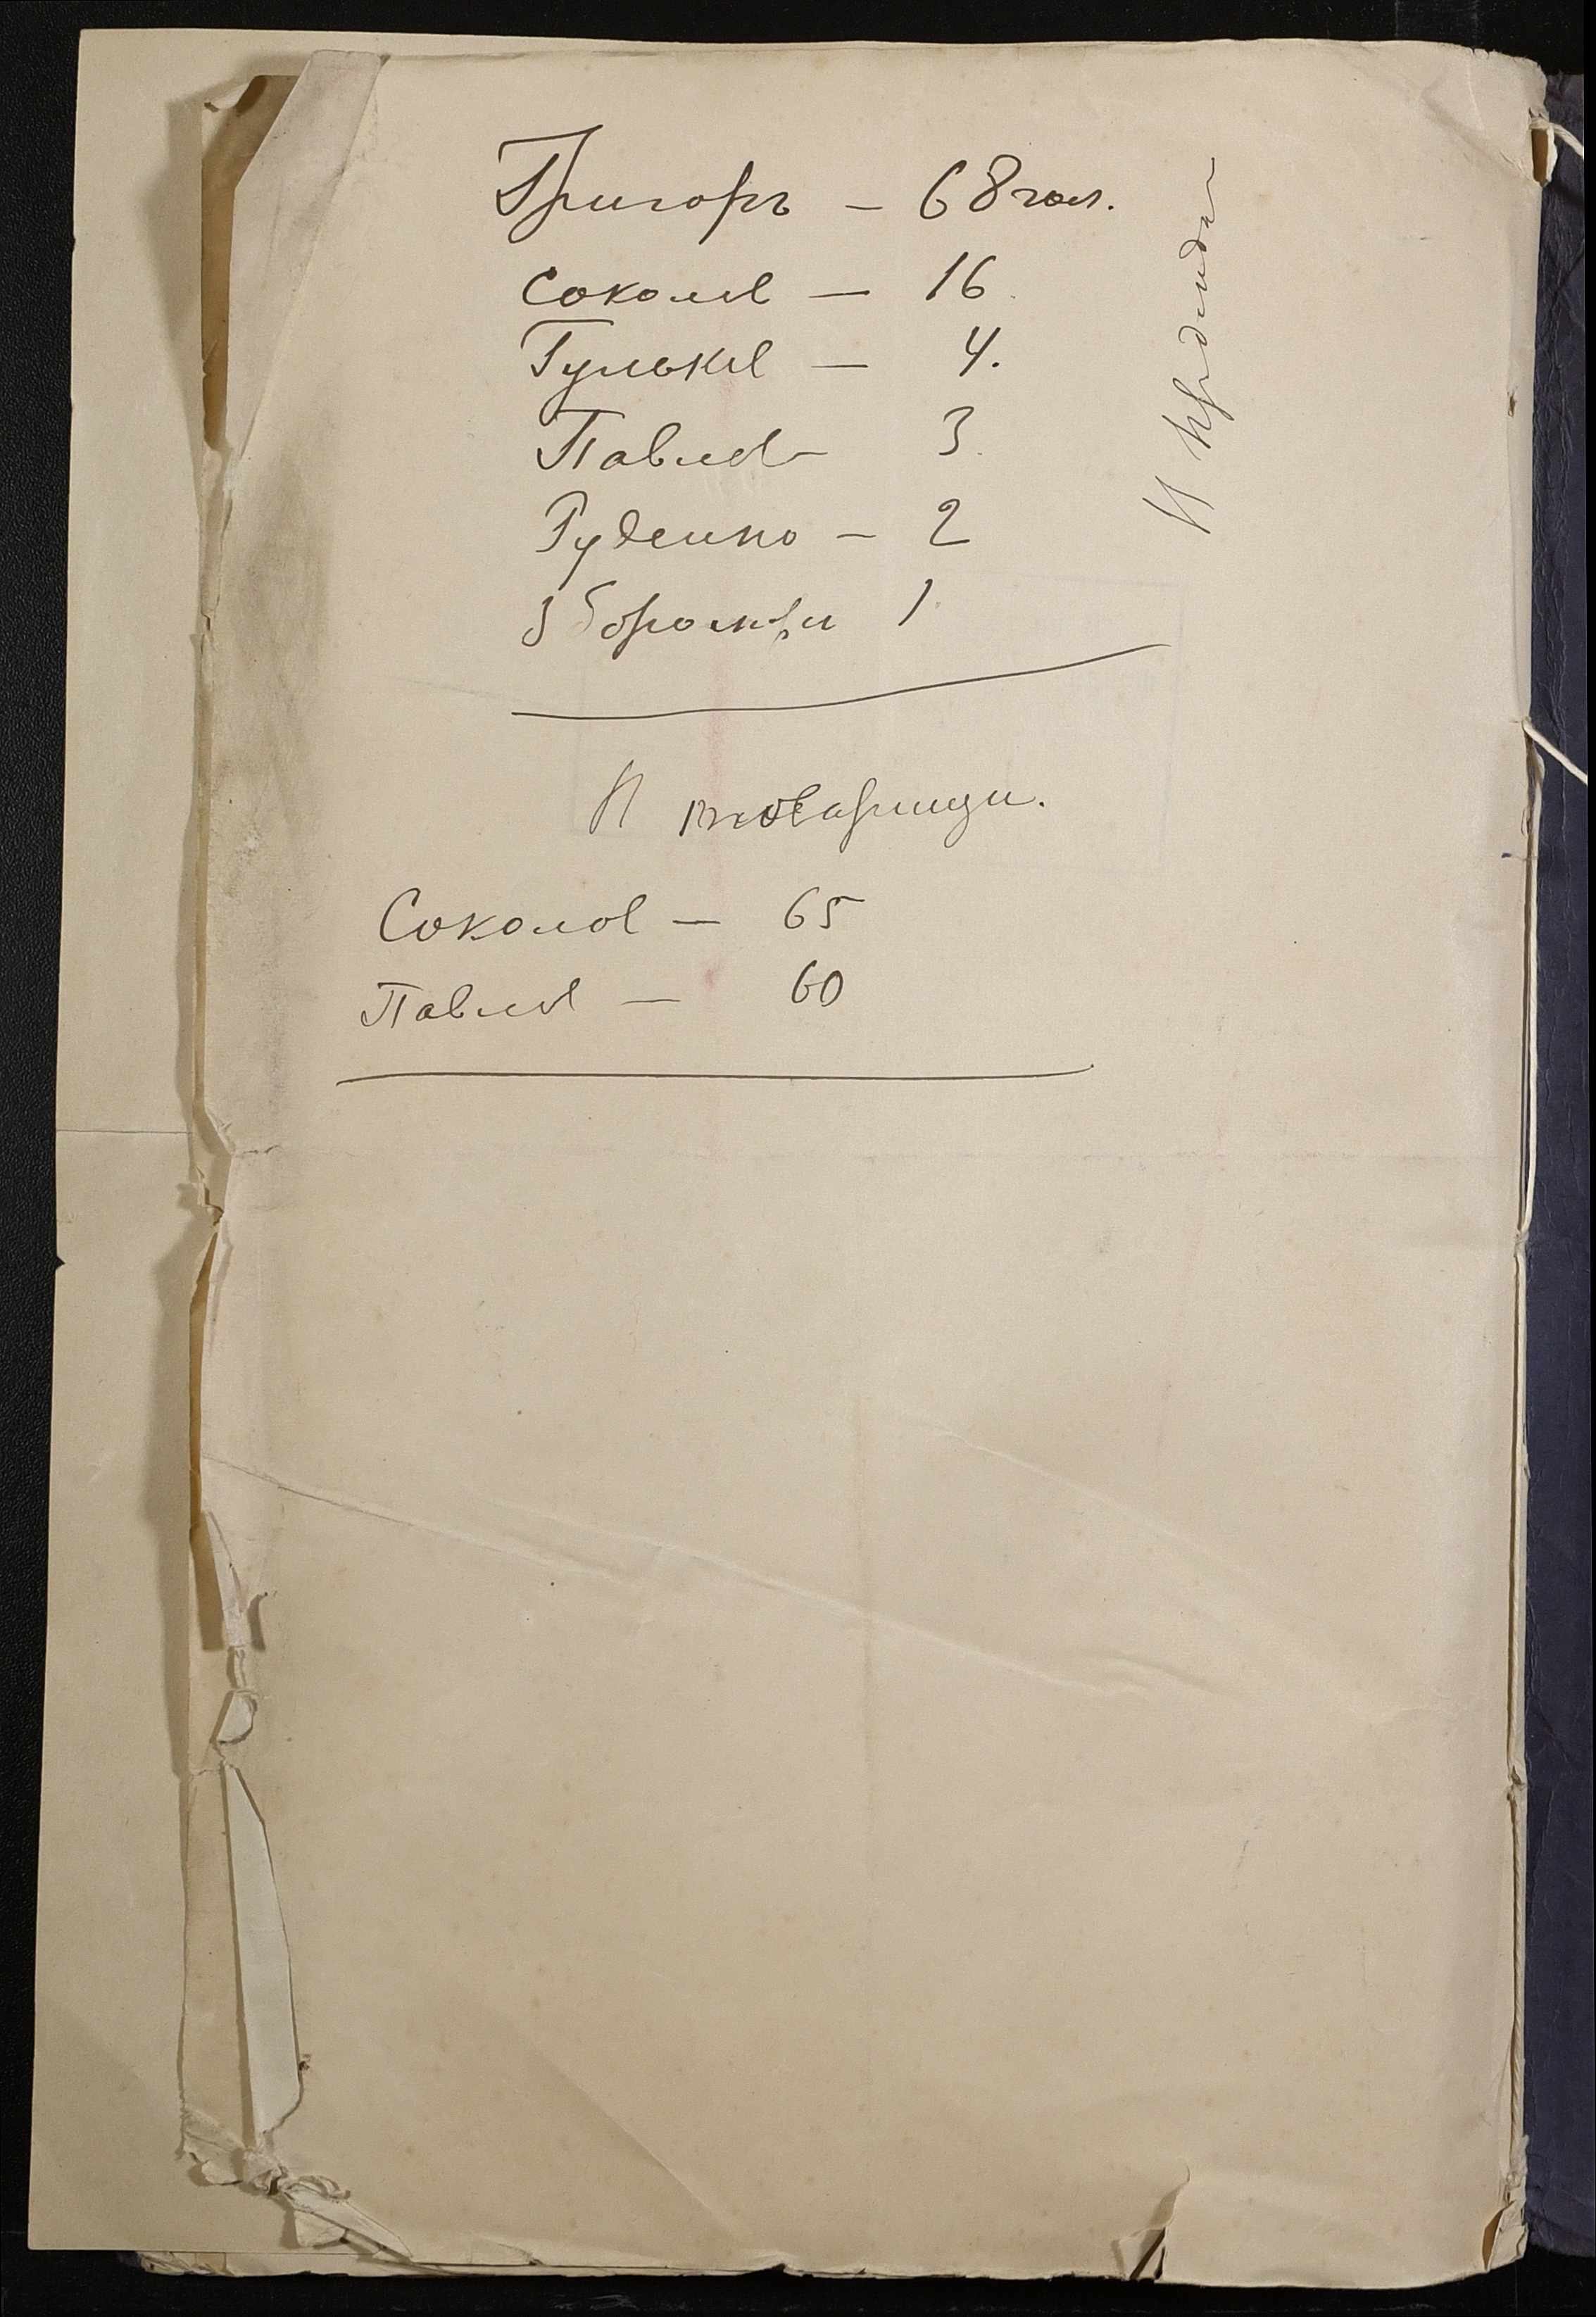 Григоръ — 68 гол.
Соколов — 16
Гульков — 4.
Павлов — 3
Руденко — 2
1
И товарищи.
Соколов — 65
Павлов — 60